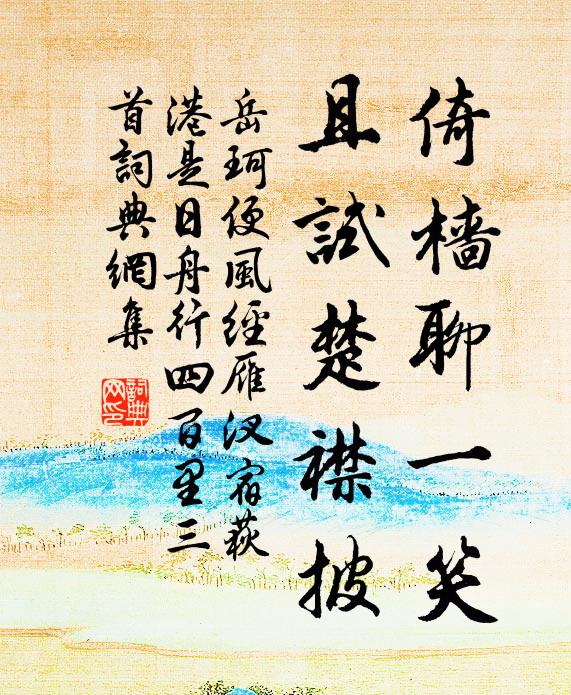 倚檣聊一笑
且試楚襟披
岳珂便風經雁汊宿荻
港是日舟行四百里三
首詞典網集
詞典
网印